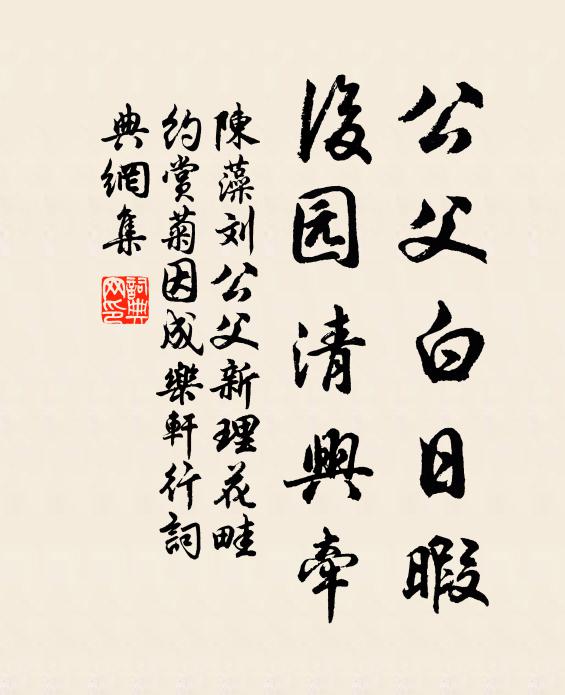 公父白日暇
後园清興牽
陳藻刘公父新理花畦
约赏菊因成樂軒行詞
典網集
詞典网印